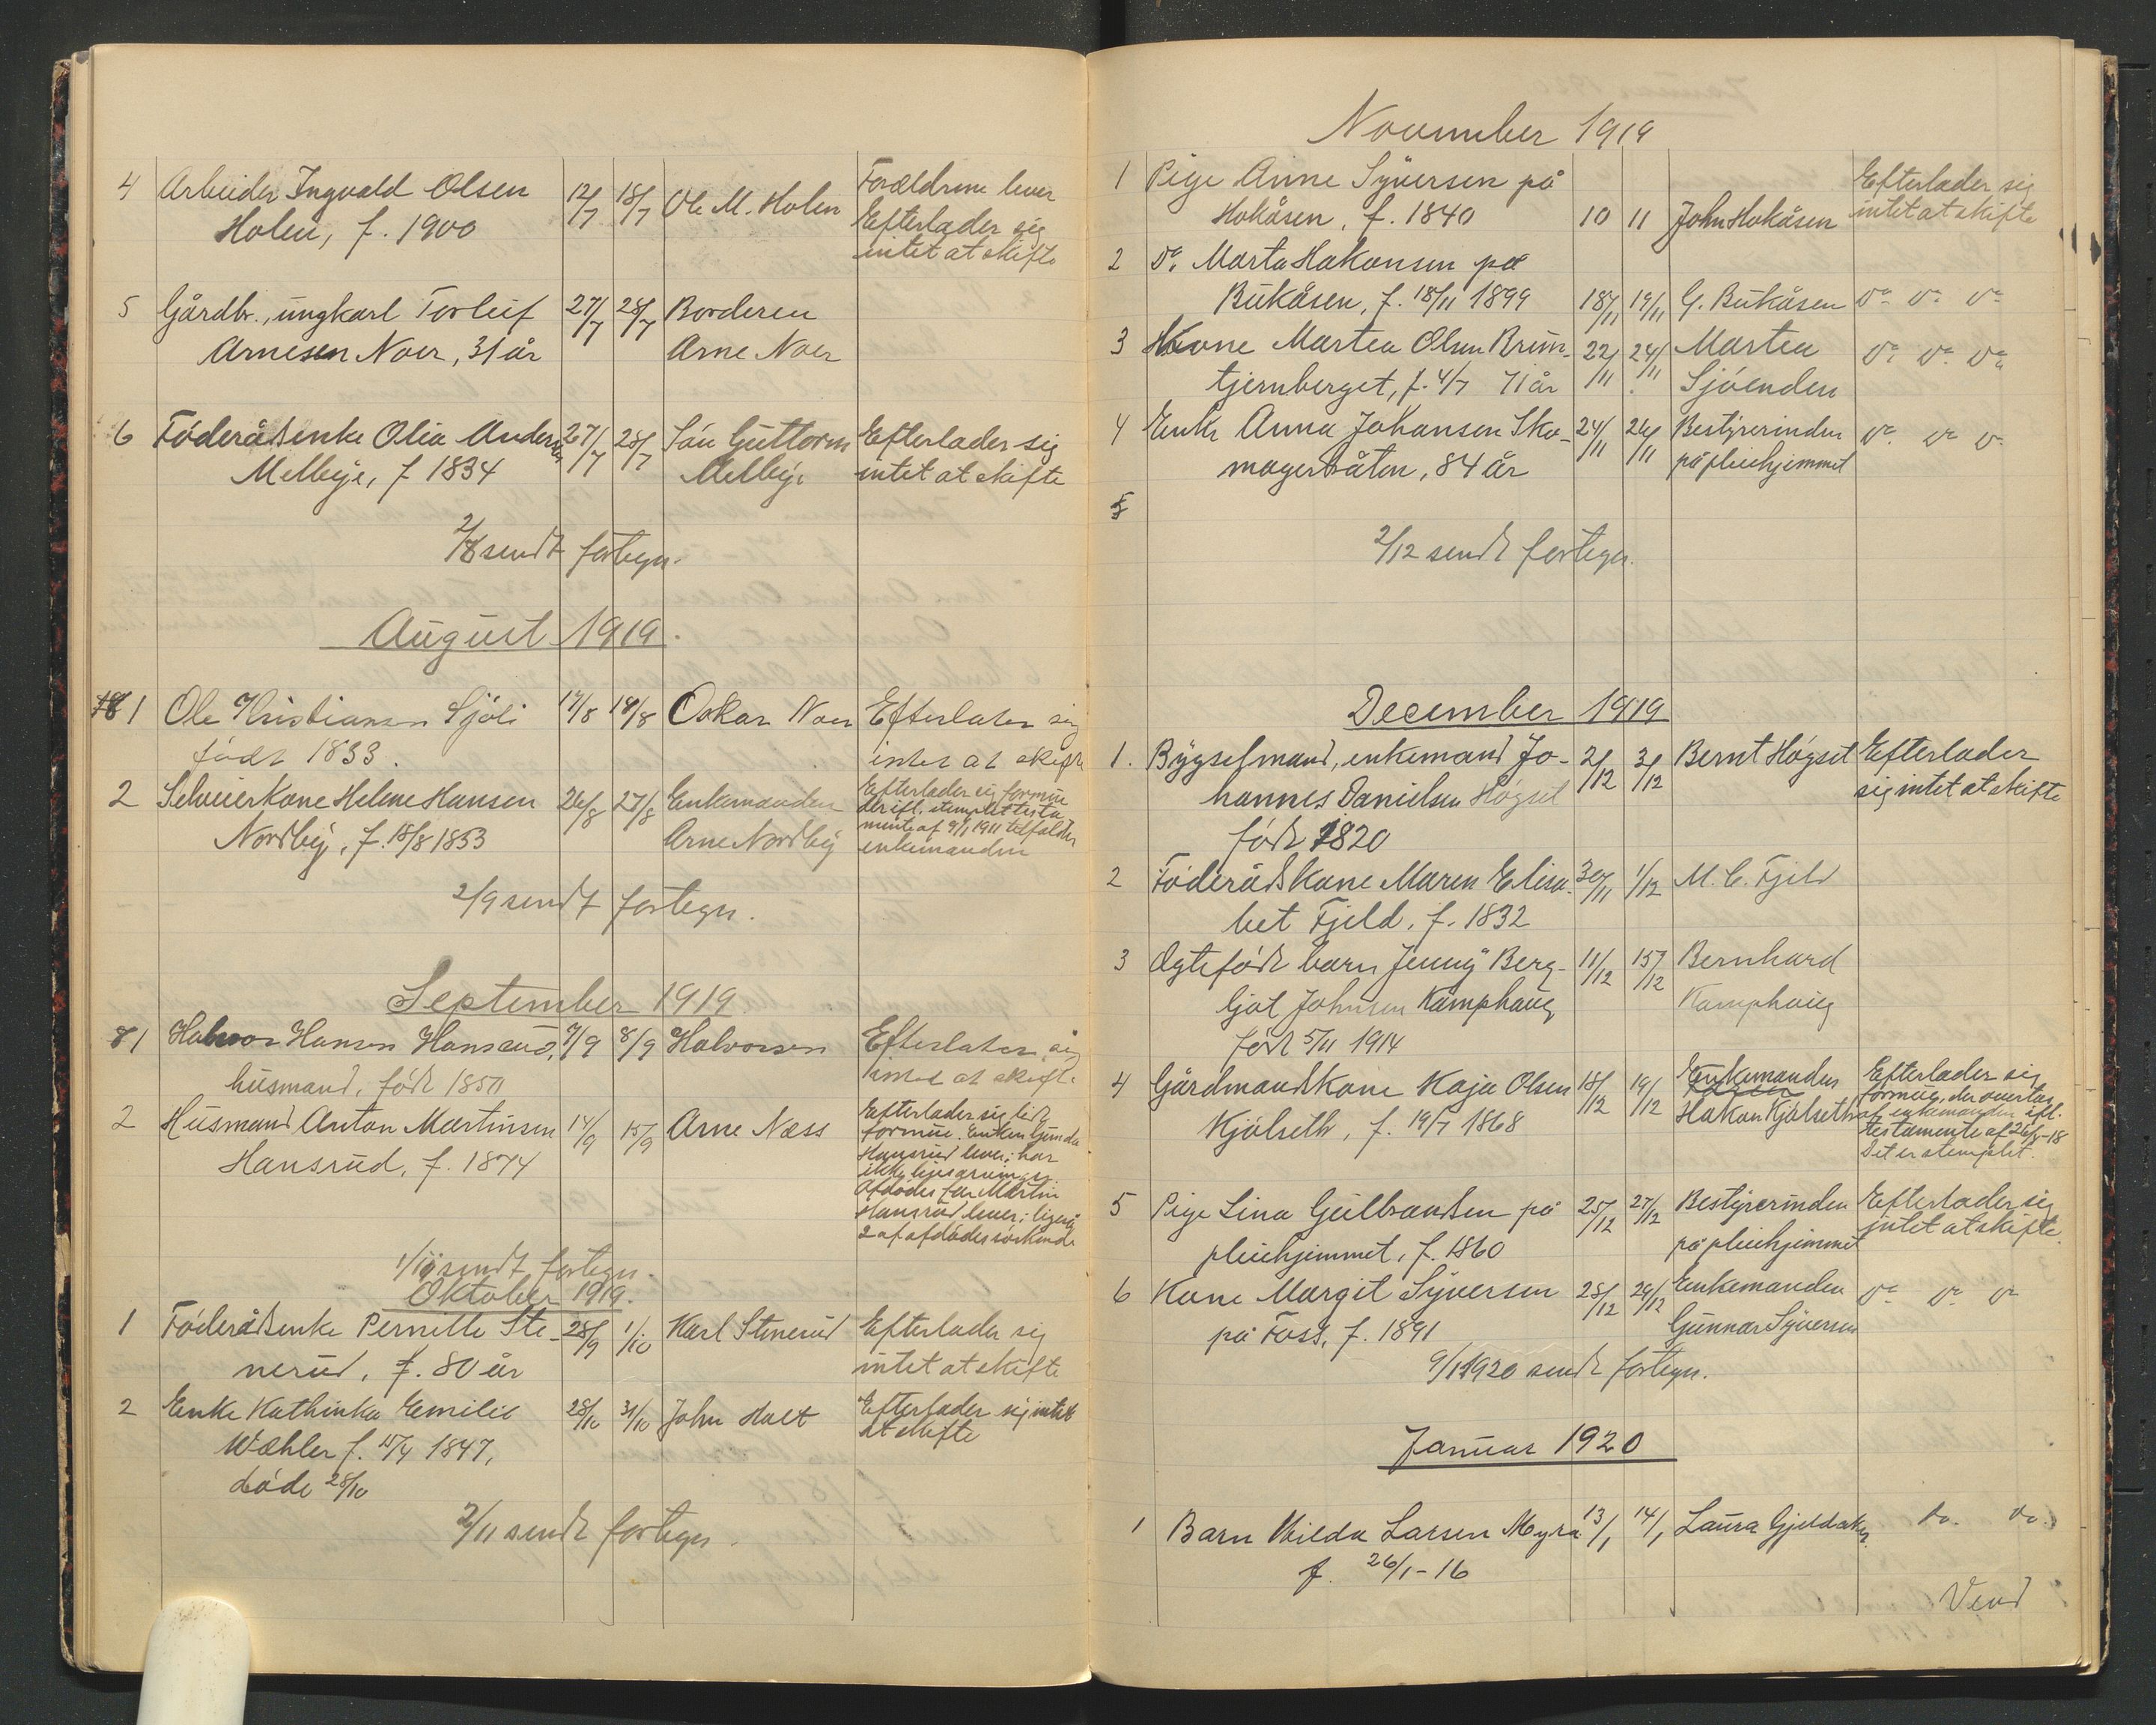 4 Arbeider Ingvald Olsen 12/7 18/7 Ole M. Holen Forældrene lever
Holen, f. 1900 Efterlader sig
intet at skifte
5 Gårdbr., ungkarl Torleif 27/7 28/7 Borderen
Arnesen Noer, 31 år Arne Noer
6 Föderådsenke Olia Anders 27/7 28/7 Guttorm Efterlader sig
Melbye, f 1834 Melbye intet at skifte
2/8 sendt fortegn.
August 1919.
1 Ole Kristiansen Sjöli 17/8 18/8 Oskar Noer Efterlater sig
födt 1833. intet at skifte
2 Selveierkone Helene Hansen 26/8 27/8 Enkemanden Efterlader sig formue
Nordby, f. 18/8 1853 Arne Nordby der ifl. stemplet testa
mente af 9/1 1911 tilfalder
enkemanden
2/9 sendt fortegn.
September 1919
1 Halvor Hansen Hansrud, 7/9 8/9 Halvorsen Efterlater sig
husmand, födt 1850 intet at skifte
2 Husmand Anton Martinsen 14/9 15/9 Arne Næss Efterlader sig lidt
Hansrud, f. 1874 formue. Enken Gunda
Hansrud lever; har
ikke livsarvinger.
Afdödes far Martin
Hansrud lever; ligeså
2 af afdödes söskende
1/10 sendt fortegn.
Oktober 1919.
1 Föderådsenke Pernille Ste- 28/9 1/10 Karl Stenerud Efterlader sig
nerud, f. 80 år intet at skifte
2 Enke Kathinka Emilie 28/10 31/10 John Holt Efterlader sig intet
Wæhler f. 15/4 1847, at skifte
döde 28/10
2/11 sendt fortegn.
November 1919
1 Pige Anne Syversen på Efterlader sig
Hokåsen, f. 1840 10 11 John Hokåsen intet at skifte
2 Do. Marta Hakonsen på
Bukåsen, f. 18/11 1899 18/11 19/11 G. Bukåsen Do Do Do
3 Kone Martea Olsen Brun- 22/11 24/11 Martea Do Do Do
tjernberget, f. 4/7 71 år Sjöenden
4 Enke Anna Johansen Sko- 24/11 26/11 Bestyrerinden Do Do Do
magerbråten, 84 år på pleiehjemmet
5
2/12 sendt fortegn.
December 1919
1. Bygselmand, enkemand Jo- 2/12 3/12 Bernt Högset Efterlader
hannes Danielsen Högset sig intet at skifte
födt 1820
2 Föderådskone Maren Elisa- 30/11 1/12 M. C. Fjeld
bet Fjeld, f. 1832
3 Ægtefödt barn Jenny Berg- 11/12 15/12 Bernhard
ljot Johnsen Kamphaug Kamphaug
födt 5/11 1914
4 Gårdmandskone Kaja Olsen 18/12 19/12 Enkemanden Efterlader sig
Kjölseth, f. 19/7 1868 Hakon Kjölseth formue, der overtas
af enkemanden ifl.
testamente af
Det er stemplet.
5 Pige Lina Gulbrandsen på 25/12 27/12 Bestyrerinden Efterlader sig
pleiehjemmet, f. 1860 på pleiehjemmet intet at skifte.
6 Kone Margit Syversen 28/12 29/12 Enkemanden Do Do Do
på Foss, f. 1891 Gunnar Syversen
9/1 1920 sendt fortegn.
Januar 1920
1 Barn Hilda Larsen Myra 13/1 14/1 Laura Gjeldaker Do. Do.
f. 26/1-16
Vend